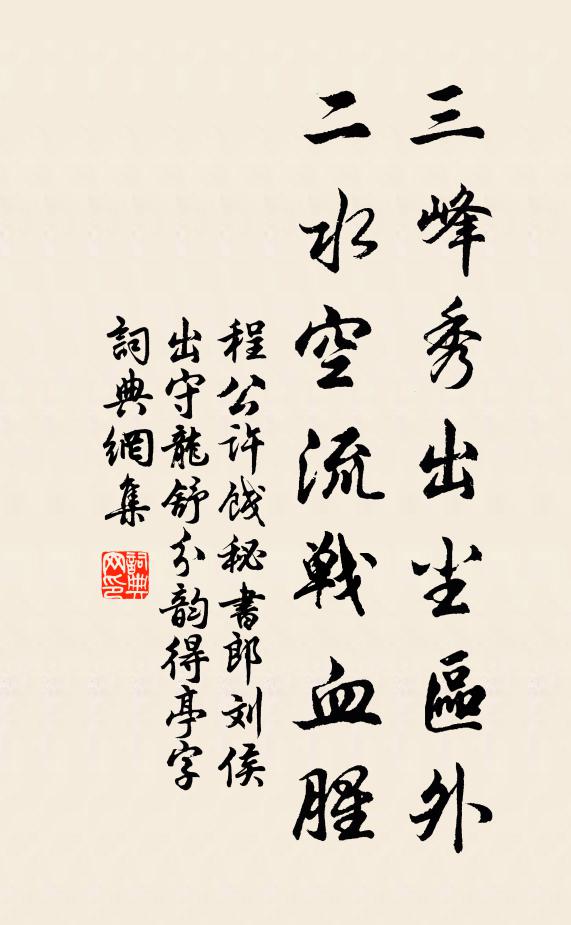 三峰秀出尘區外
二水空流戰血腥
程公许餞秘書郎刘侯
出守龍舒分韵得亭字
詞典網集
詞典网印